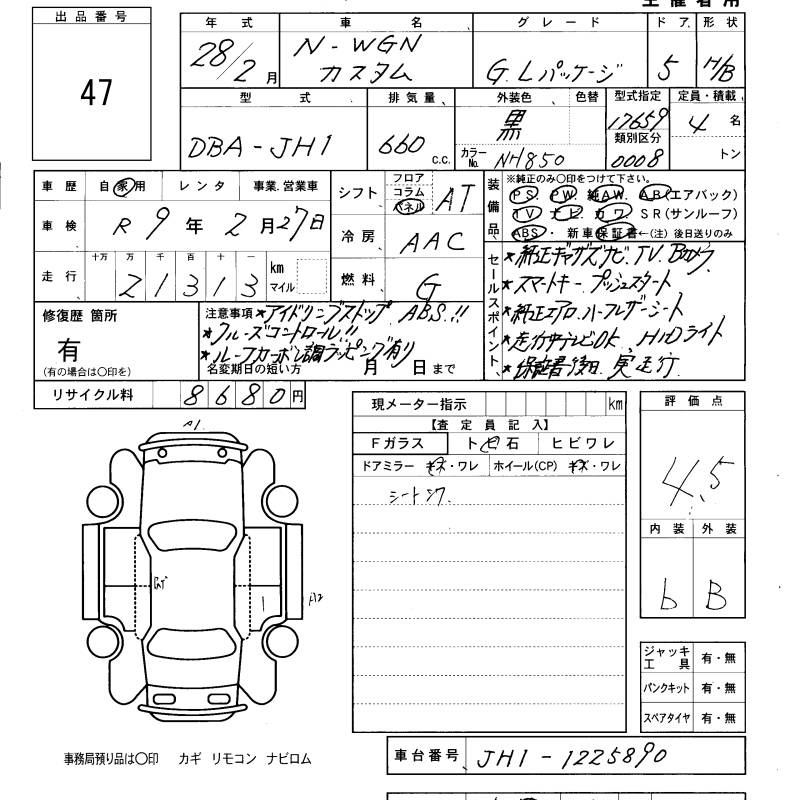 出品番号
47
年式 車名 グレード ドア 形状
28/2月 N-WGN カスタム G.Lパッケージ 5 H/B
型式 排気量 外装色 色替 型式指定 定員・積載
DBA-JH1 660 c.c. 黒 17659 4名
カラーNo. NH850 類別区分 0008 トン
車歴 自家用 レンタ 事業.営業車
車検 R9年2月27日
走行 十万 万 千 百 十 一
21313 km マイル
シフト フロア コラム パネル AT
冷房 AAC
燃料 G
装備品 ※純正のみ〇印をつけて下さい。
PS. PW. 純AW. AB(エアバック)
TV ナビ カワ SR(サンルーフ)
ABS・新車保証書←(注)後日送りのみ
セールスポイント
★純正ギャザズナビ.TV.Bカメラ
★スマートキー.プッシュスタート
★純正エアロ.ハーフレザーシート
★走行中テレビOK. HIDライト
★保証書後日.実走行
修復歴 箇所
有
(有の場合は〇印を)
注意事項 ★アイドリングストップ. ABS!!
★クルーズコントロール!!
★ルーフカーボン調ラッピング有り
名変期日の短い方 月 日まで
リサイクル料 8680円
現メーター指示 km
【査定員記入】
Fガラス トビ石 ヒビワレ
ドアミラー キズ・ワレ ホイール(CP) キズ・ワレ
シートシワ
評価点
4.5
内装 外装
b B
A1
A2
ジャッキ工具 有・無
パンクキット 有・無
スペアタイヤ 有・無
事務局預り品は〇印 カギ リモコン ナビロム
車台番号 JH1-1225890